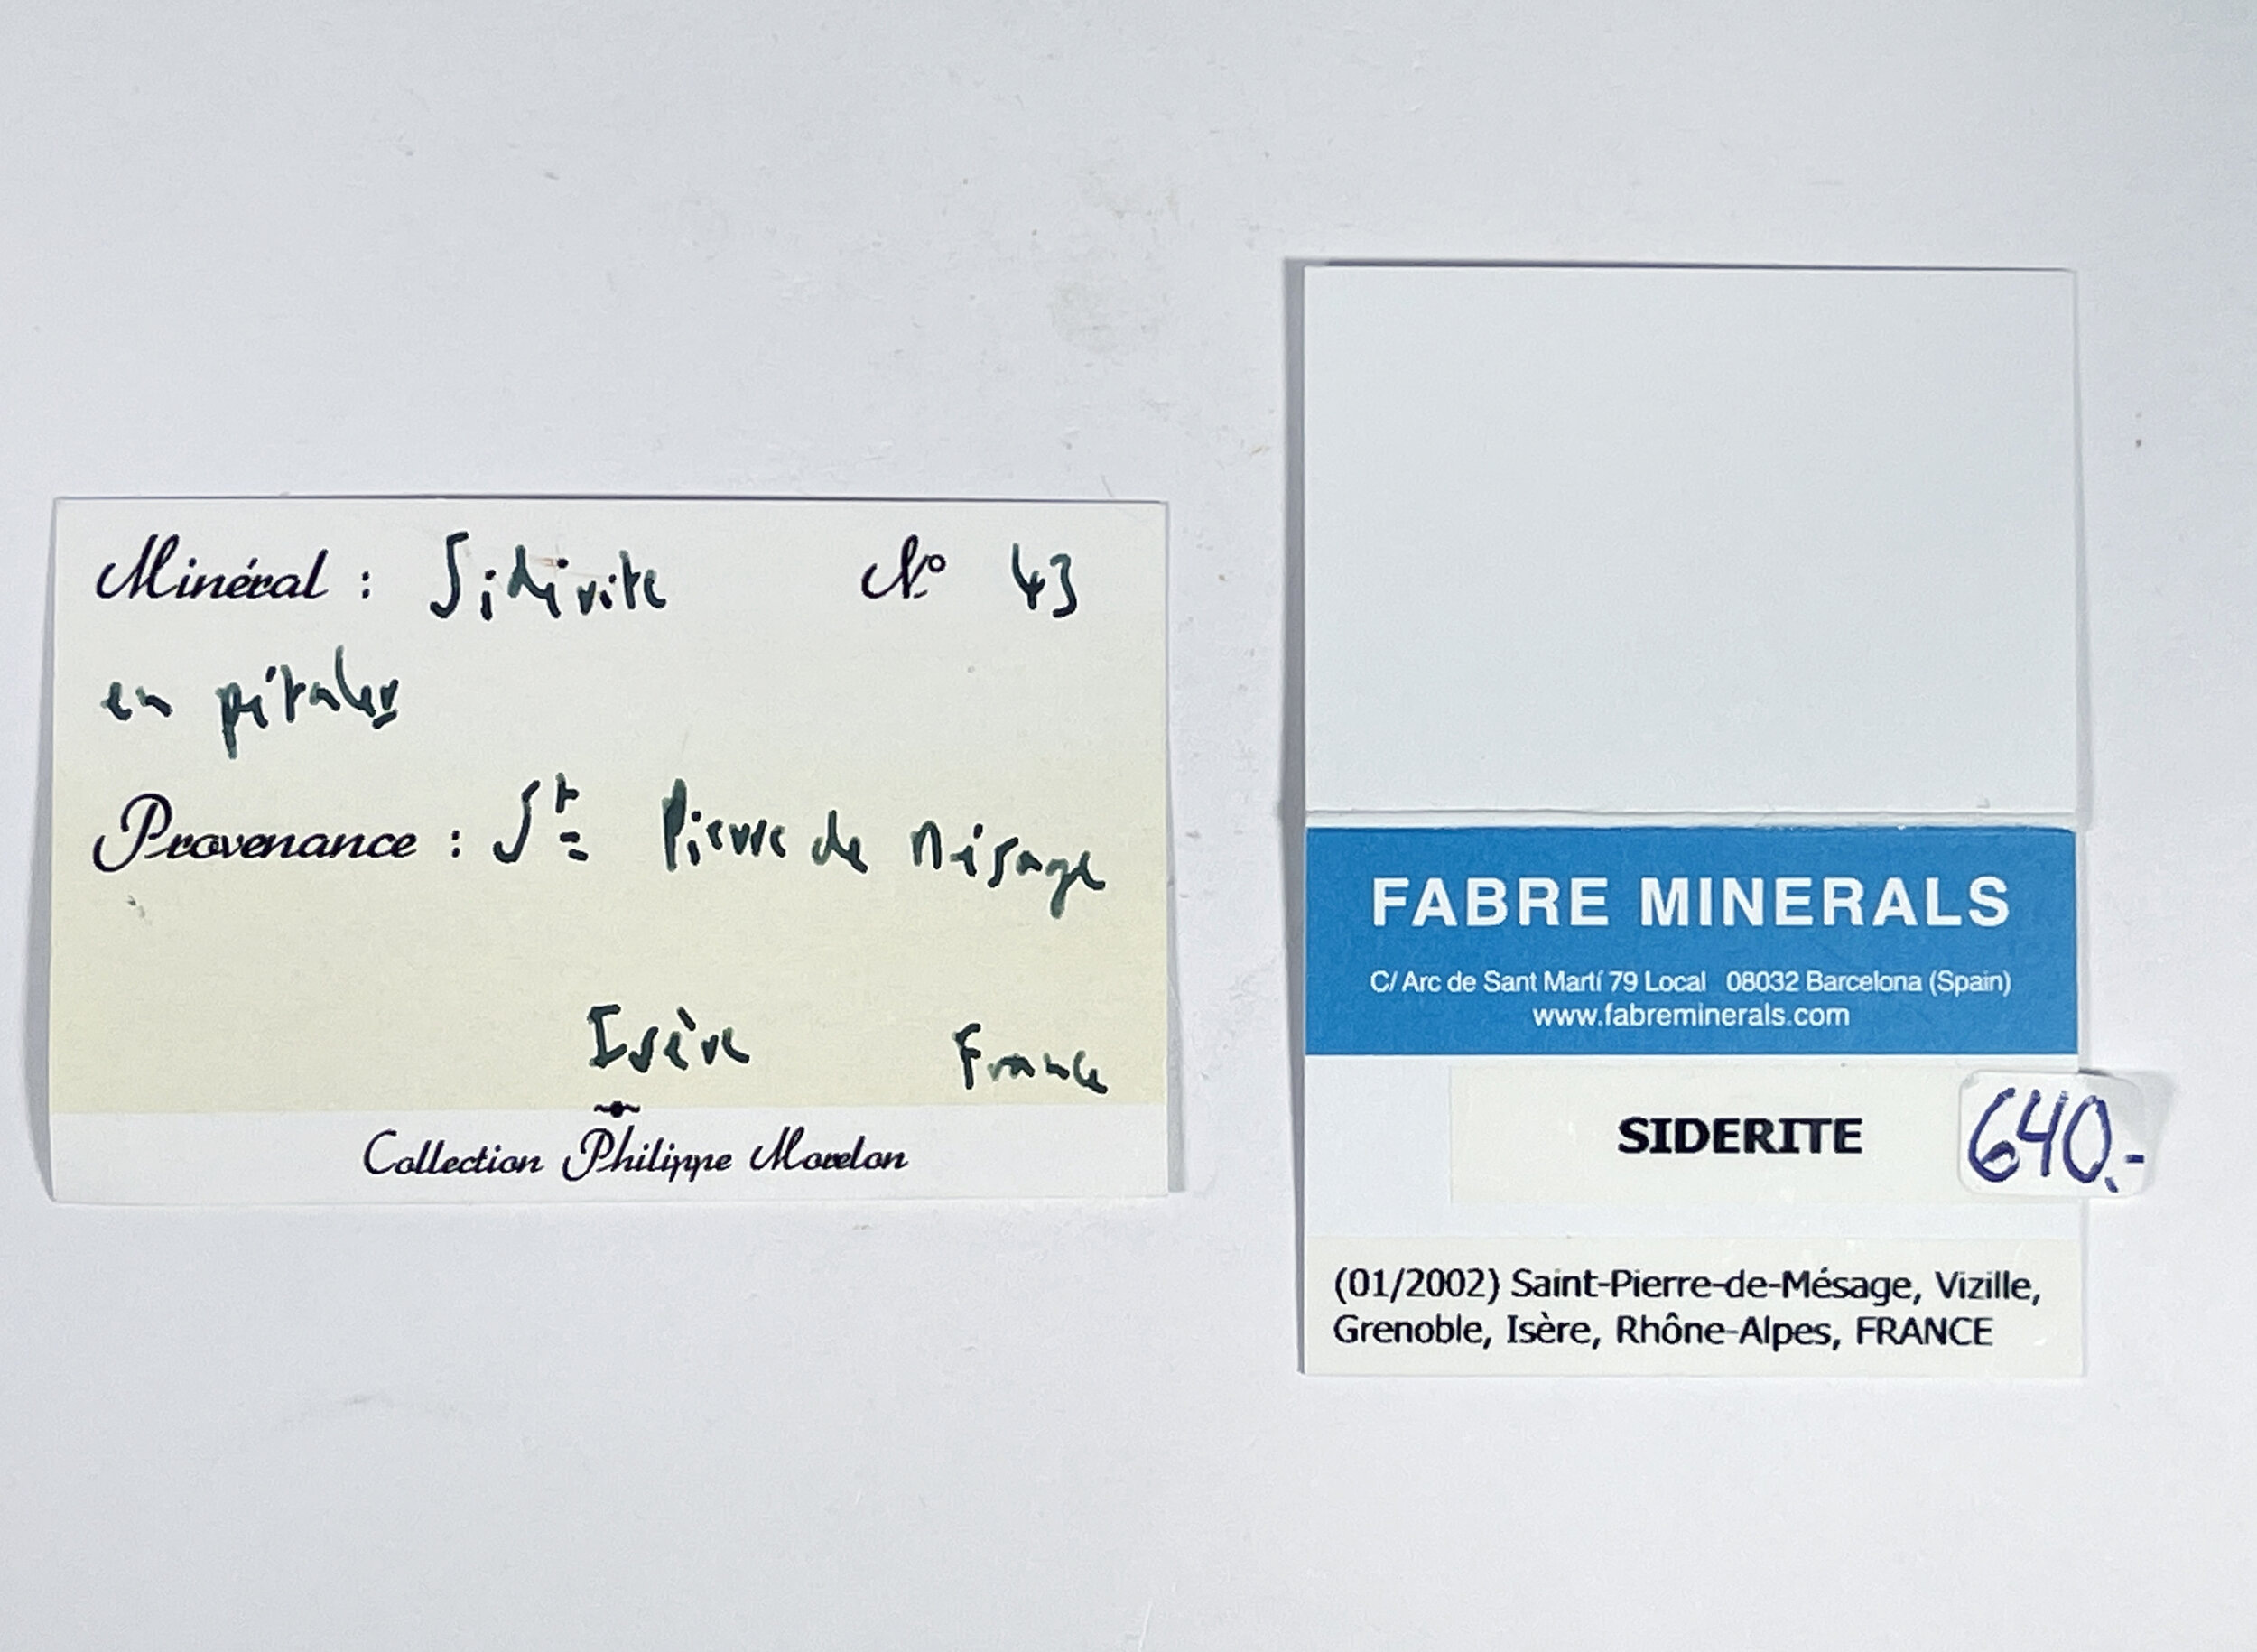 Minéral : Sidérite N° 43
en pétales
Provenance : St Pierre de Mésage
Isère France
Collection Philippe Morelon
FABRE MINERALS
C/ Arc de Sant Martí 79 Local 08032 Barcelona (Spain)
www.fabreminerals.com
SIDERITE 640.-
(01/2002) Saint-Pierre-de-Mésage, Vizille,
Grenoble, Isère, Rhône-Alpes, FRANCE